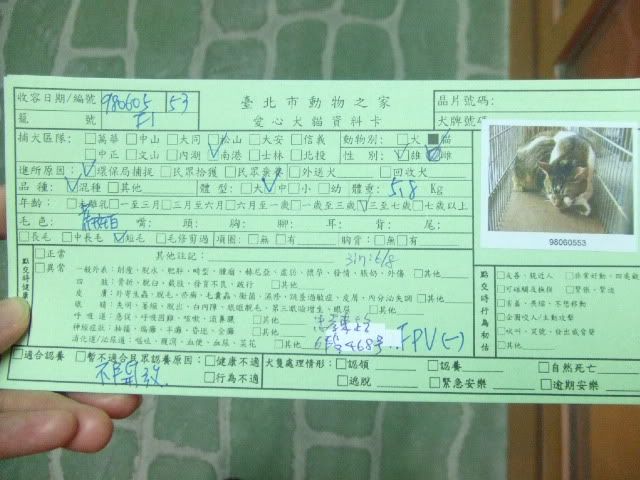 收容日期/編號 980605 53 臺北市動物之家 晶片號碼:
籠 號 F1 愛心犬貓資料卡 犬牌號碼:
捕犬區隊: □萬華 □中山 □大同 □松山 □大安 □信義 動物別: □犬 ■貓
□中正 □文山 □內湖 ☑南港 □士林 □北投 性 別: □雄 ☑雌
進所原因: ☑環保局捕捉 □民眾拾獲 □民眾棄養 □外送犬 □回收犬
品 種: ☑混種 □其他 體 型: □大 ☑中 □小 □幼 體重: 5.8 Kg
年齡: □未離乳 □一至三月 □三月至六月 □六月至一歲 □一歲至三歲 ☑三至七歲 □七歲以上
毛 色: 嘴: 頭: 胸: 腳: 耳: 背: 尾:
□長毛 □中長毛 ☑短毛 □毛修剪過 項圈: □無 □有 胸背: □無 □有
98060553
點交時健康 □正常 其他註記:
□異常 一般外表: 削瘦、脫水、肥胖、畸型、腫瘤、赫尼亞、虛弱、懷孕、發情、脹奶、外傷 □其他
四 肢: 骨折、脫臼、截肢、發育不良、跛行 □其他
皮 膚: 外寄生蟲、脫毛、疥癬、毛囊蟲、黴菌、濕疹、跳蚤過敏症、皮屑、內分泌失調 □其他
眼 睛: 失明、萎縮、脫出、白內障、眼瞼脫毛、第三眼瞼增生、眼屎 □其他
呼吸道: 急促、呼吸困難、咳嗽、流鼻膿 □其他
神經症狀: 抽搐、癲癇、半癱、昏迷、全癱 □其他
消化道/泌尿道: 嘔吐、腹瀉、血便、血尿、菜花 □其他
6段468号 FPV(-)
點交時行為初估 □友善、親近人 □非常好動、四處
□可碰觸及撫摸 □緊張、緊迫
□害羞、畏縮、不想移動
□會齜咬人/主動攻擊
□吠叫、哭號、發出威脅聲
□其他
□適合認養 □暫不適合民眾認養原因: □健康不適 犬隻處理情形: □認領 □認養 □自然死亡
不開放 □行為不適 □逃脫 □緊急安樂 □逾期安樂